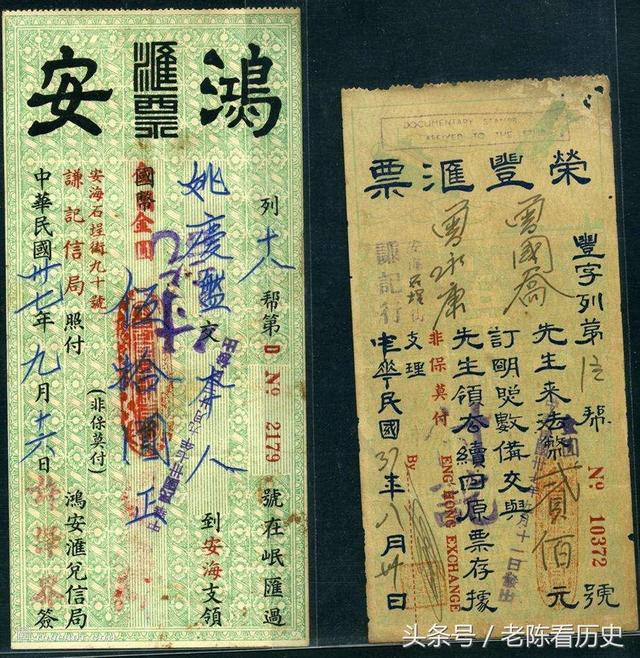 鴻安
滙票
列十八帮第D No 2179號在岷滙過
姚慶盤交本人到安海支領
國幣金圓伍拾圓正
安海石埕街九十號
謙記信局照付
(非保莫付)
鴻安滙兌信局簽
中華民國卅七年九月十六日
DOCUMENTARY STAMP
AFFIXED TO THE
榮豐滙票
豐字列第帮 No 10372號
曾國喬先生来法幣貳佰元
訂明照數備交與
曾永康先生領公續回原票存據
非保莫付
ENG HONG EXCHANGE
By
安海石埕街
謙記行支理
中華民國37年八月廿日
头条号 / 老陈看历史